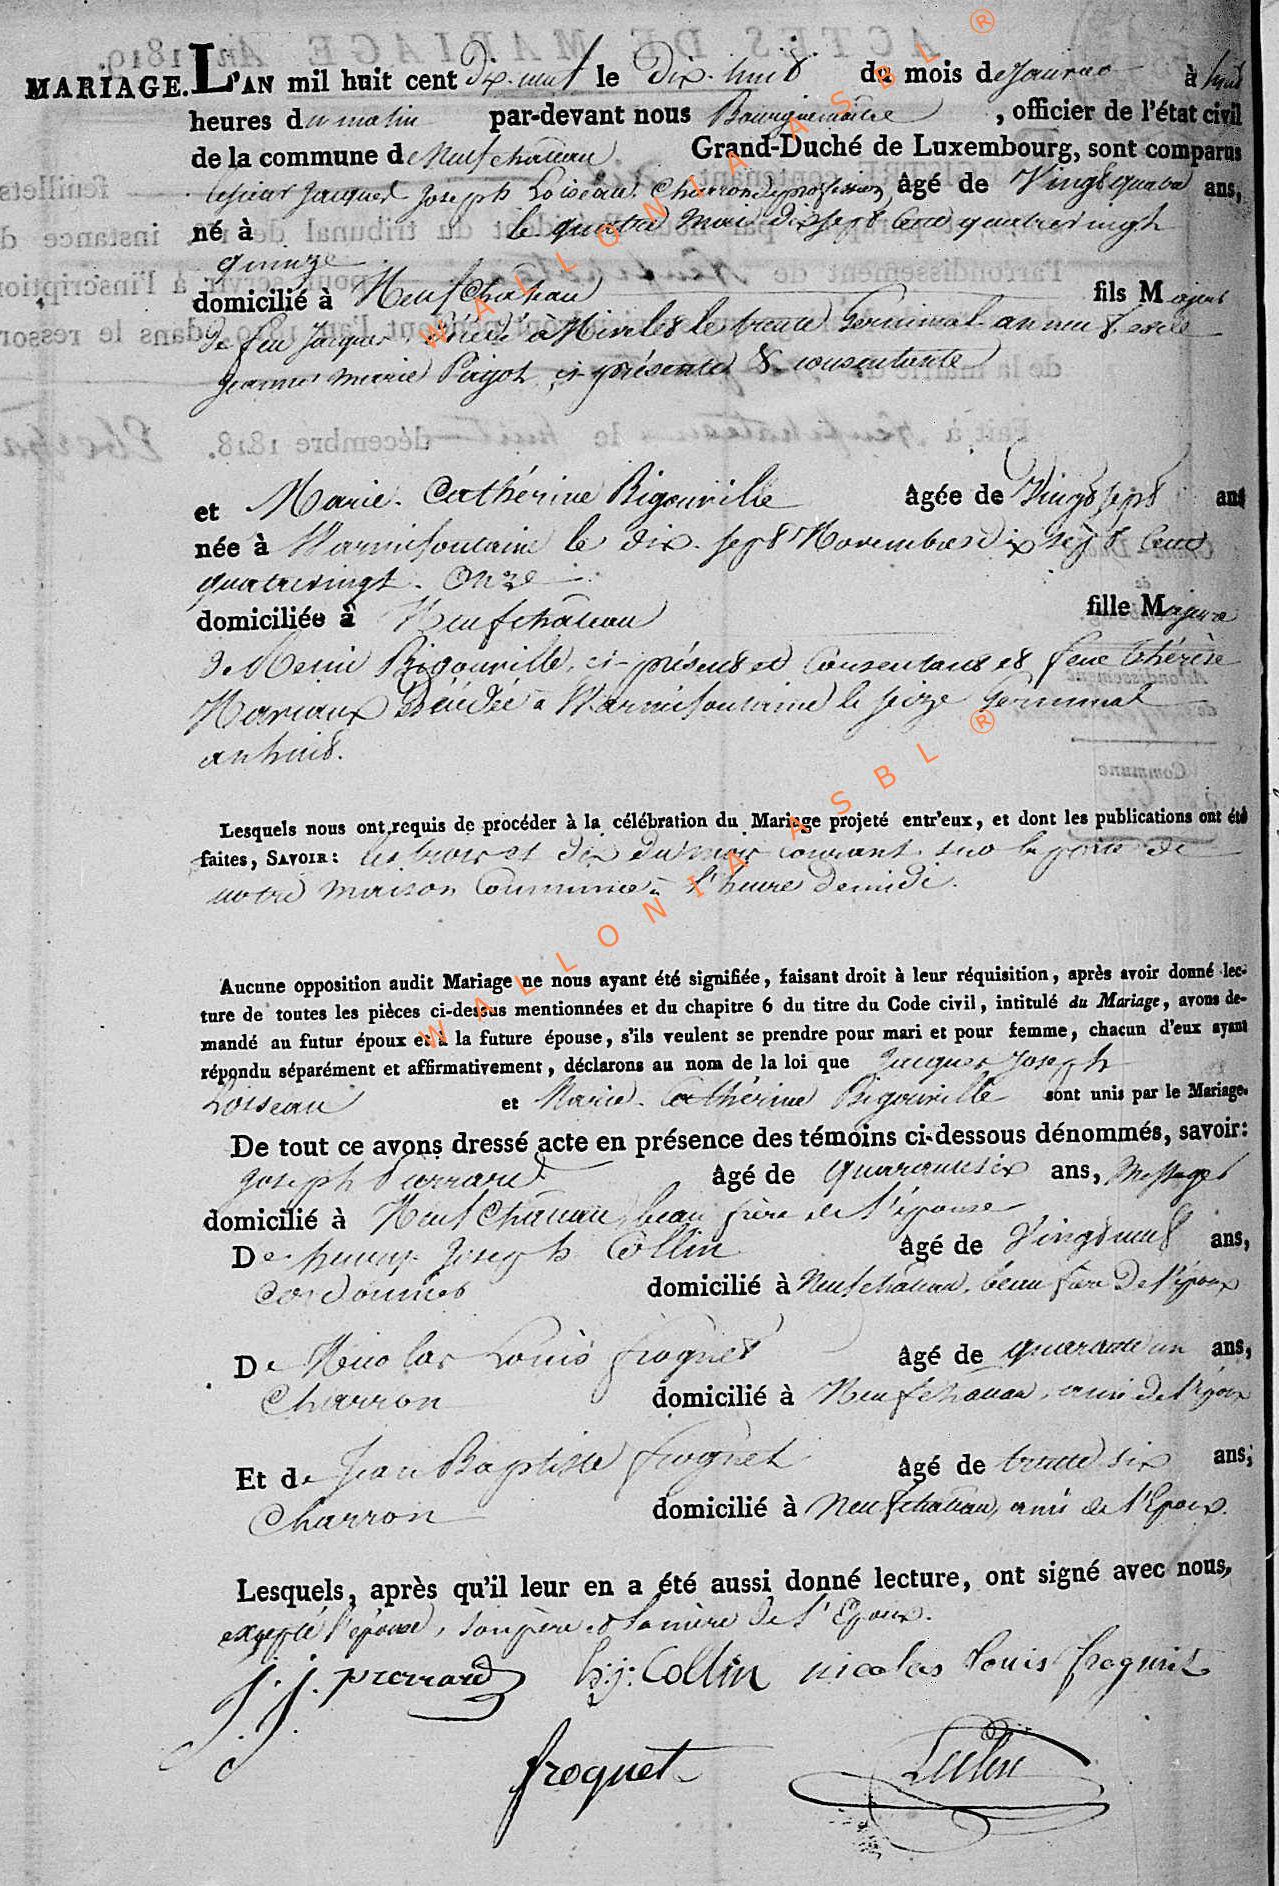 MARIAGE. L'AN mil huit cent dix-neuf le Dix-huit du mois de Janvier à huit
heures du matin par-devant nous Bourguemaitre, officier de l'état civil
de la commune de Neufchâteau Grand-Duché de Luxembourg, sont comparus
Jacques Joseph Loiseau, Charron de profession, âgé de Vingt quatre ans,
né à le quatre mai dix sept cent quatrevingt
quinze
domicilié à Neufchâteau fils Majeur
de feu Jacques, à Nivelles le trente Germinal an neuf et de
Jeanne Marie Pigot, ci-présente & consentente
et Marie-Cathérine Bigonville âgée de Vingt sept ans
née à Warmifontaine le dix-sept Novembre dix sept cent
quatrevingt-onze
domiciliée à Neufchâteau fille Majeure
de Bigonville, ci-présent et consentant et feue Thérèse
Mariaux Décédée à Warmifontaine le seize Germinal
an huit.
Lesquels nous ont requis de procéder à la célébration du Mariage projeté entr'eux, et dont les publications ont été
faites, SAVOIR: les trois et dix du mois courant sur la porte de
notre maison Commune à l'heure de midi.
Aucune opposition audit Mariage ne nous ayant été signifiée, faisant droit à leur réquisition, après avoir donné lec-
ture de toutes les pièces ci-dessus mentionnées et du chapitre 6 du titre du Code civil, intitulé du Mariage, avons de-
mandé au futur époux et à la future épouse, s'ils veulent se prendre pour mari et pour femme, chacun d'eux ayant
répondu séparément et affirmativement, déclarons au nom de la loi que Jacques Joseph
Loiseau et Marie-Cathérine Bigonville sont unis par le Mariage.
De tout ce avons dressé acte en présence des témoins ci-dessous dénommés, savoir:
Joseph Pierrard âgé de quarante six ans, Messager
domicilié à Neufchâteau, beau frère de l'épouse
De henry Joseph Collin âgé de Vingt neuf ans,
Cordonnier domicilié à Neufchâteau, beau frère de l'époux
De Nicolas Louis Froguet âgé de quarante un ans,
Charron domicilié à Neufchâteau, ami de l'époux
Et de Jean Baptiste Froguet âgé de trente six ans,
Charron domicilié à Neufchâteau, ami de l'Epoux.
Lesquels, après qu'il leur en a été aussi donné lecture, ont signé avec nous,
excepté l'épouse, son père & la mère de l'Epoux.
J. J. pierrard h:j: Collin nicolas Louis froguet
froguet
WALLONIA ASBL ®
WALLONIA ASBL ®